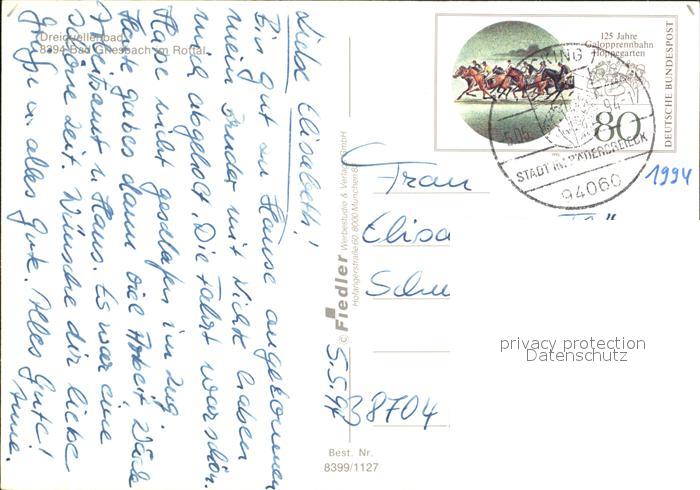 Dreiquellenbad
8394 Bad Griesbach im Rottal
Liebe Elisabeth!
Bin gut zu Hause angekommen
mein Bruder mit Nichte haben
mich abgeholt. Die Fahrt war schön.
Habe nicht geschlafen im Zug.
Heute gabes dann viel Arbeit, Wäsche
Arbeitsamt u. Haus. Es war eine
schöne Zeit. Wünsche dir liebe
alles Gute. Alles Gute!
Anne.
© Fiedler Werbestudio & Verlag GmbH
Hofangerstraße 60, 8000 München 83
125 Jahre
Galopprennbahn
Hoppegarten
80
DEUTSCHE BUNDESPOST
STADT IM BÄDERDREIECK
94060
1994
Frau
Elisa
Schu
privacy protection
Datenschutz
5.5.94
38704
Best. Nr.
8399/1127